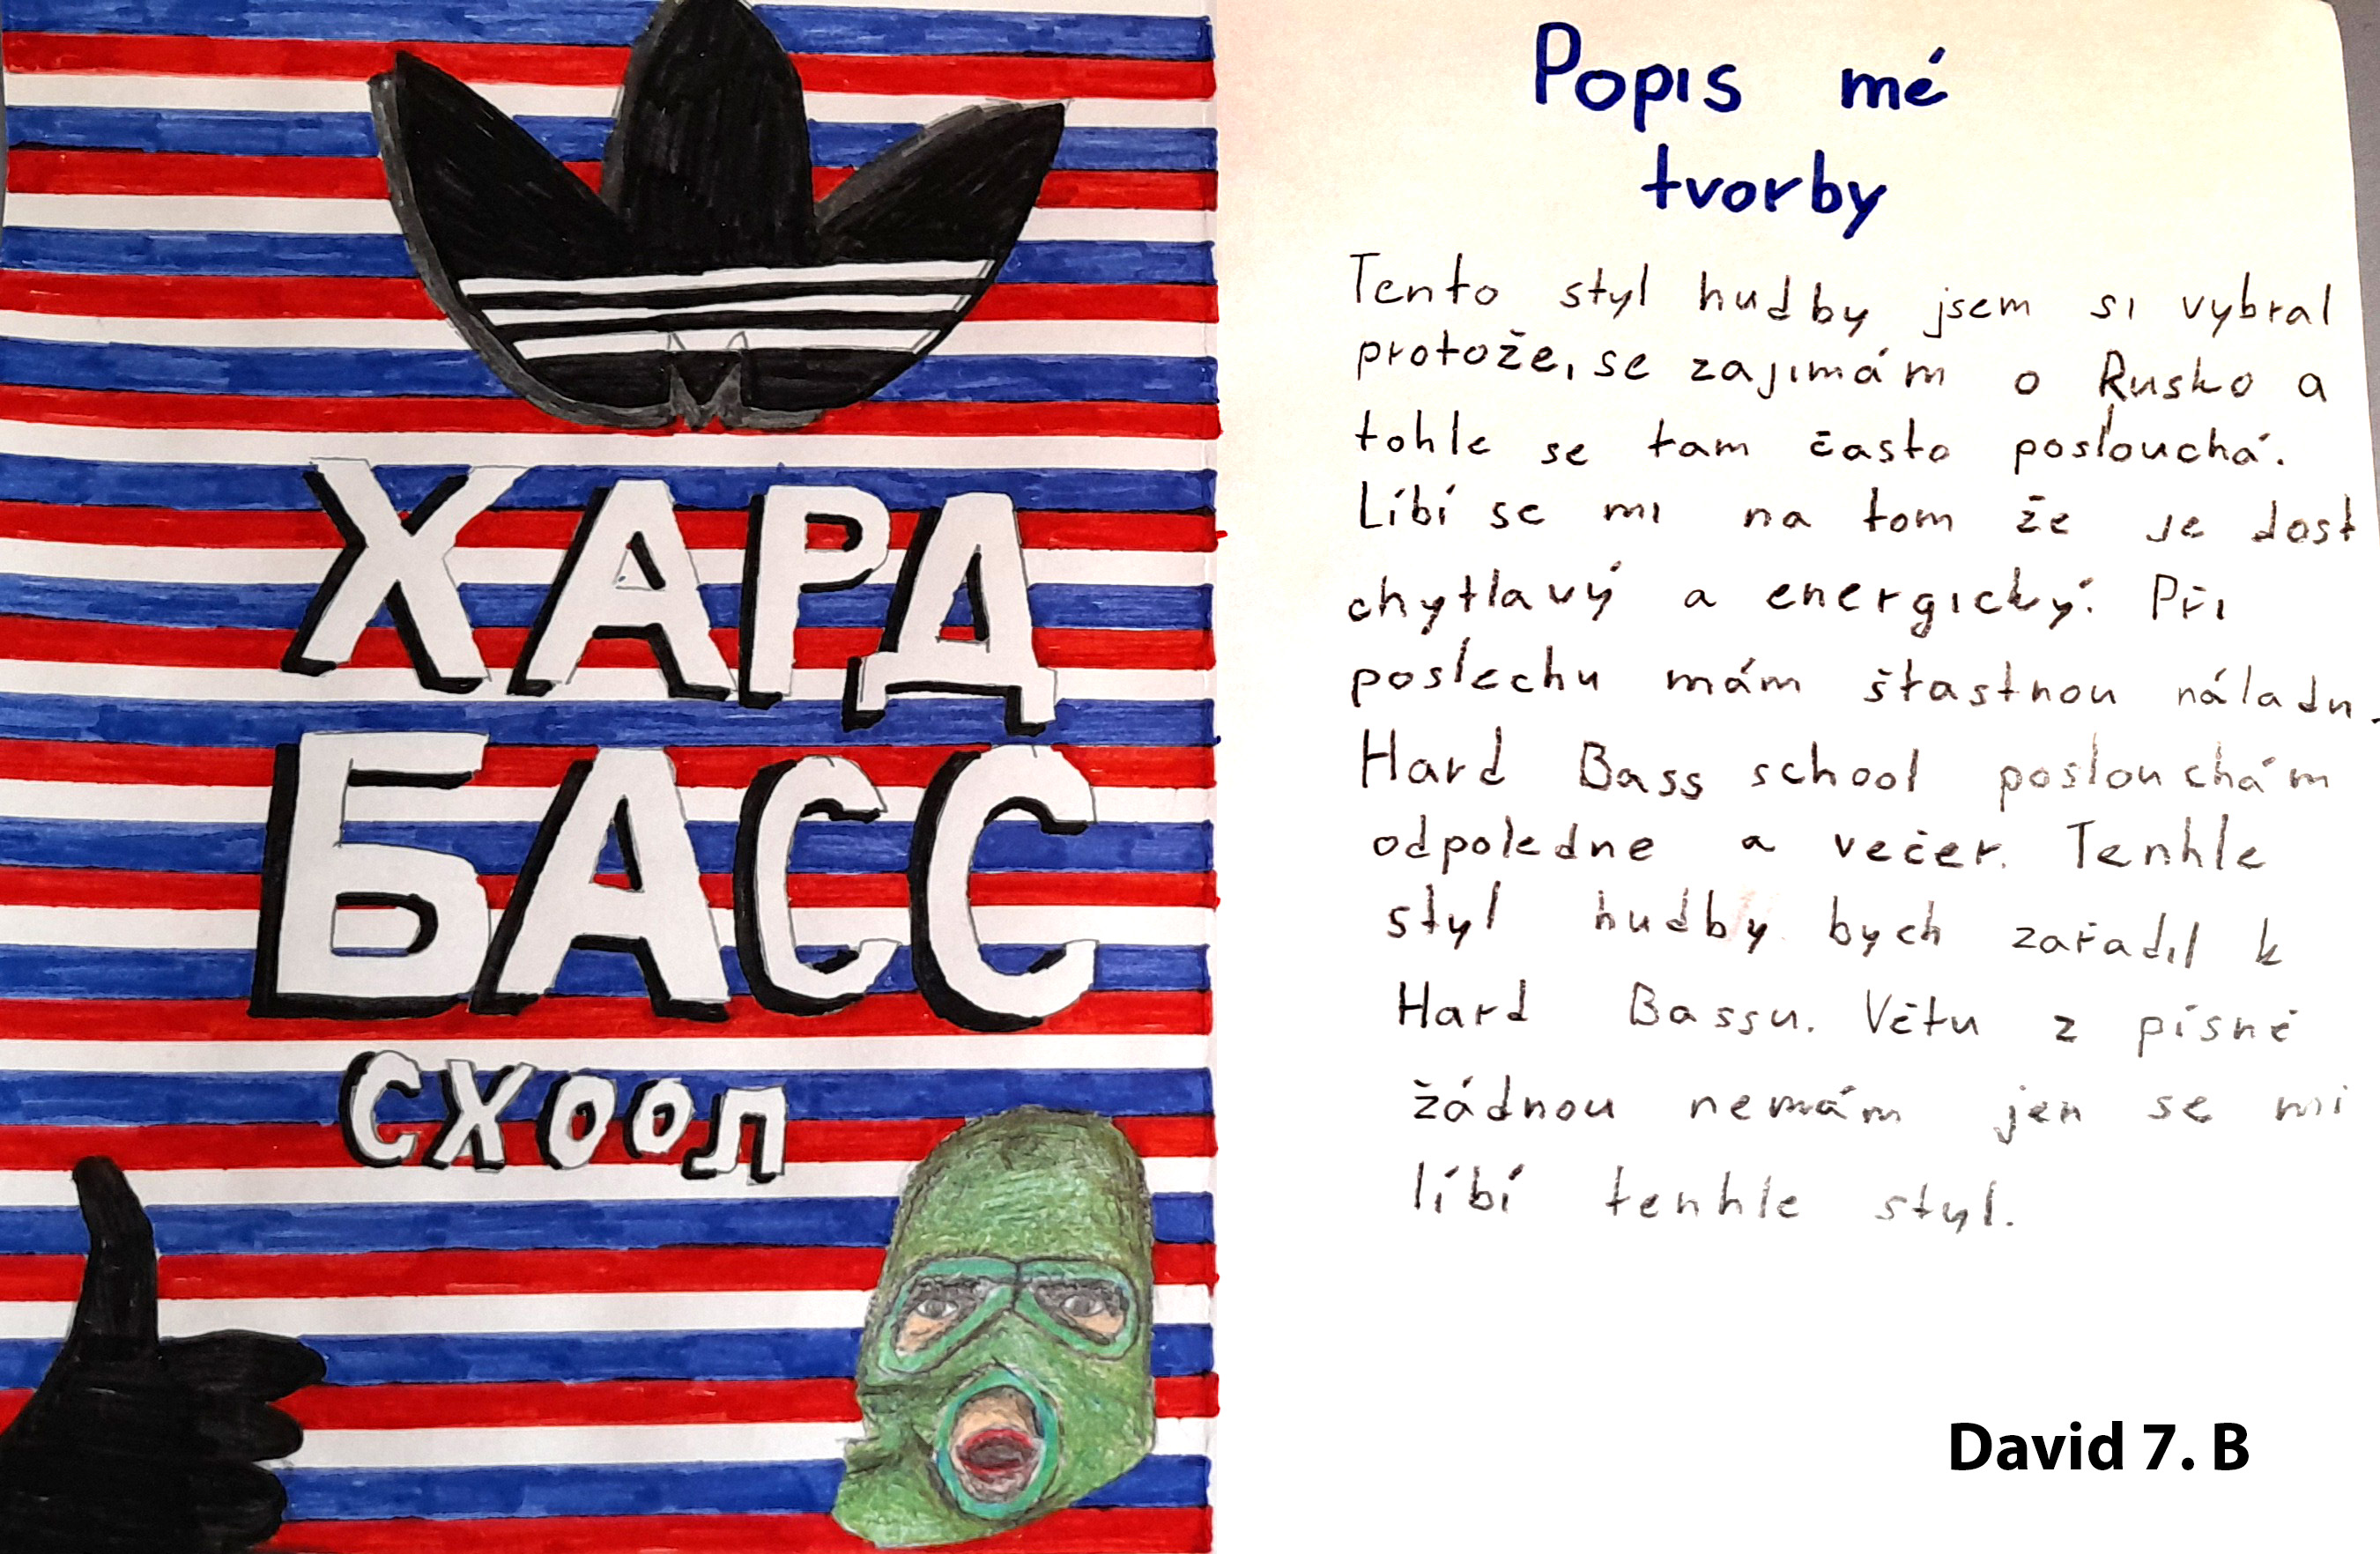 ХАРД
БАСС
СХООЛ
Popis mé
tvorby
Tento styl hudby jsem si vybral
protože, se zajímám o Rusko a
tohle se tam často poslouchá.
Líbí se mi na tom že je dost
chytlavý a energický. Při
poslechu mám štastnou náladu.
Hard Bass school poslouchám
odpoledne a večer. Tenhle
styl hudby bych zařadil k
Hard Bassu. Větu z písně
žádnou nemám jen se mi
líbí tenhle styl.
David 7. B